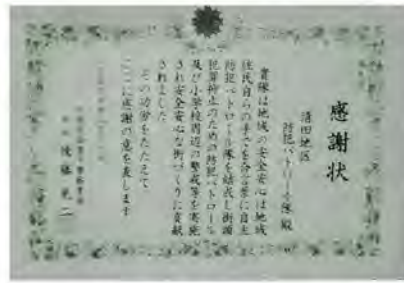 感謝状
清田地区
防犯パトロール隊殿
貴隊は地域の安全安心は地域
住民自らの手でを合言葉に自主
防犯パトロール隊を結成し街頭
犯罪抑止のための防犯パトロール
及び小学校周辺の警戒等を実施
され安全安心な街づくりに貢献
されました
その功労をたたえて
ここに感謝の意を表します